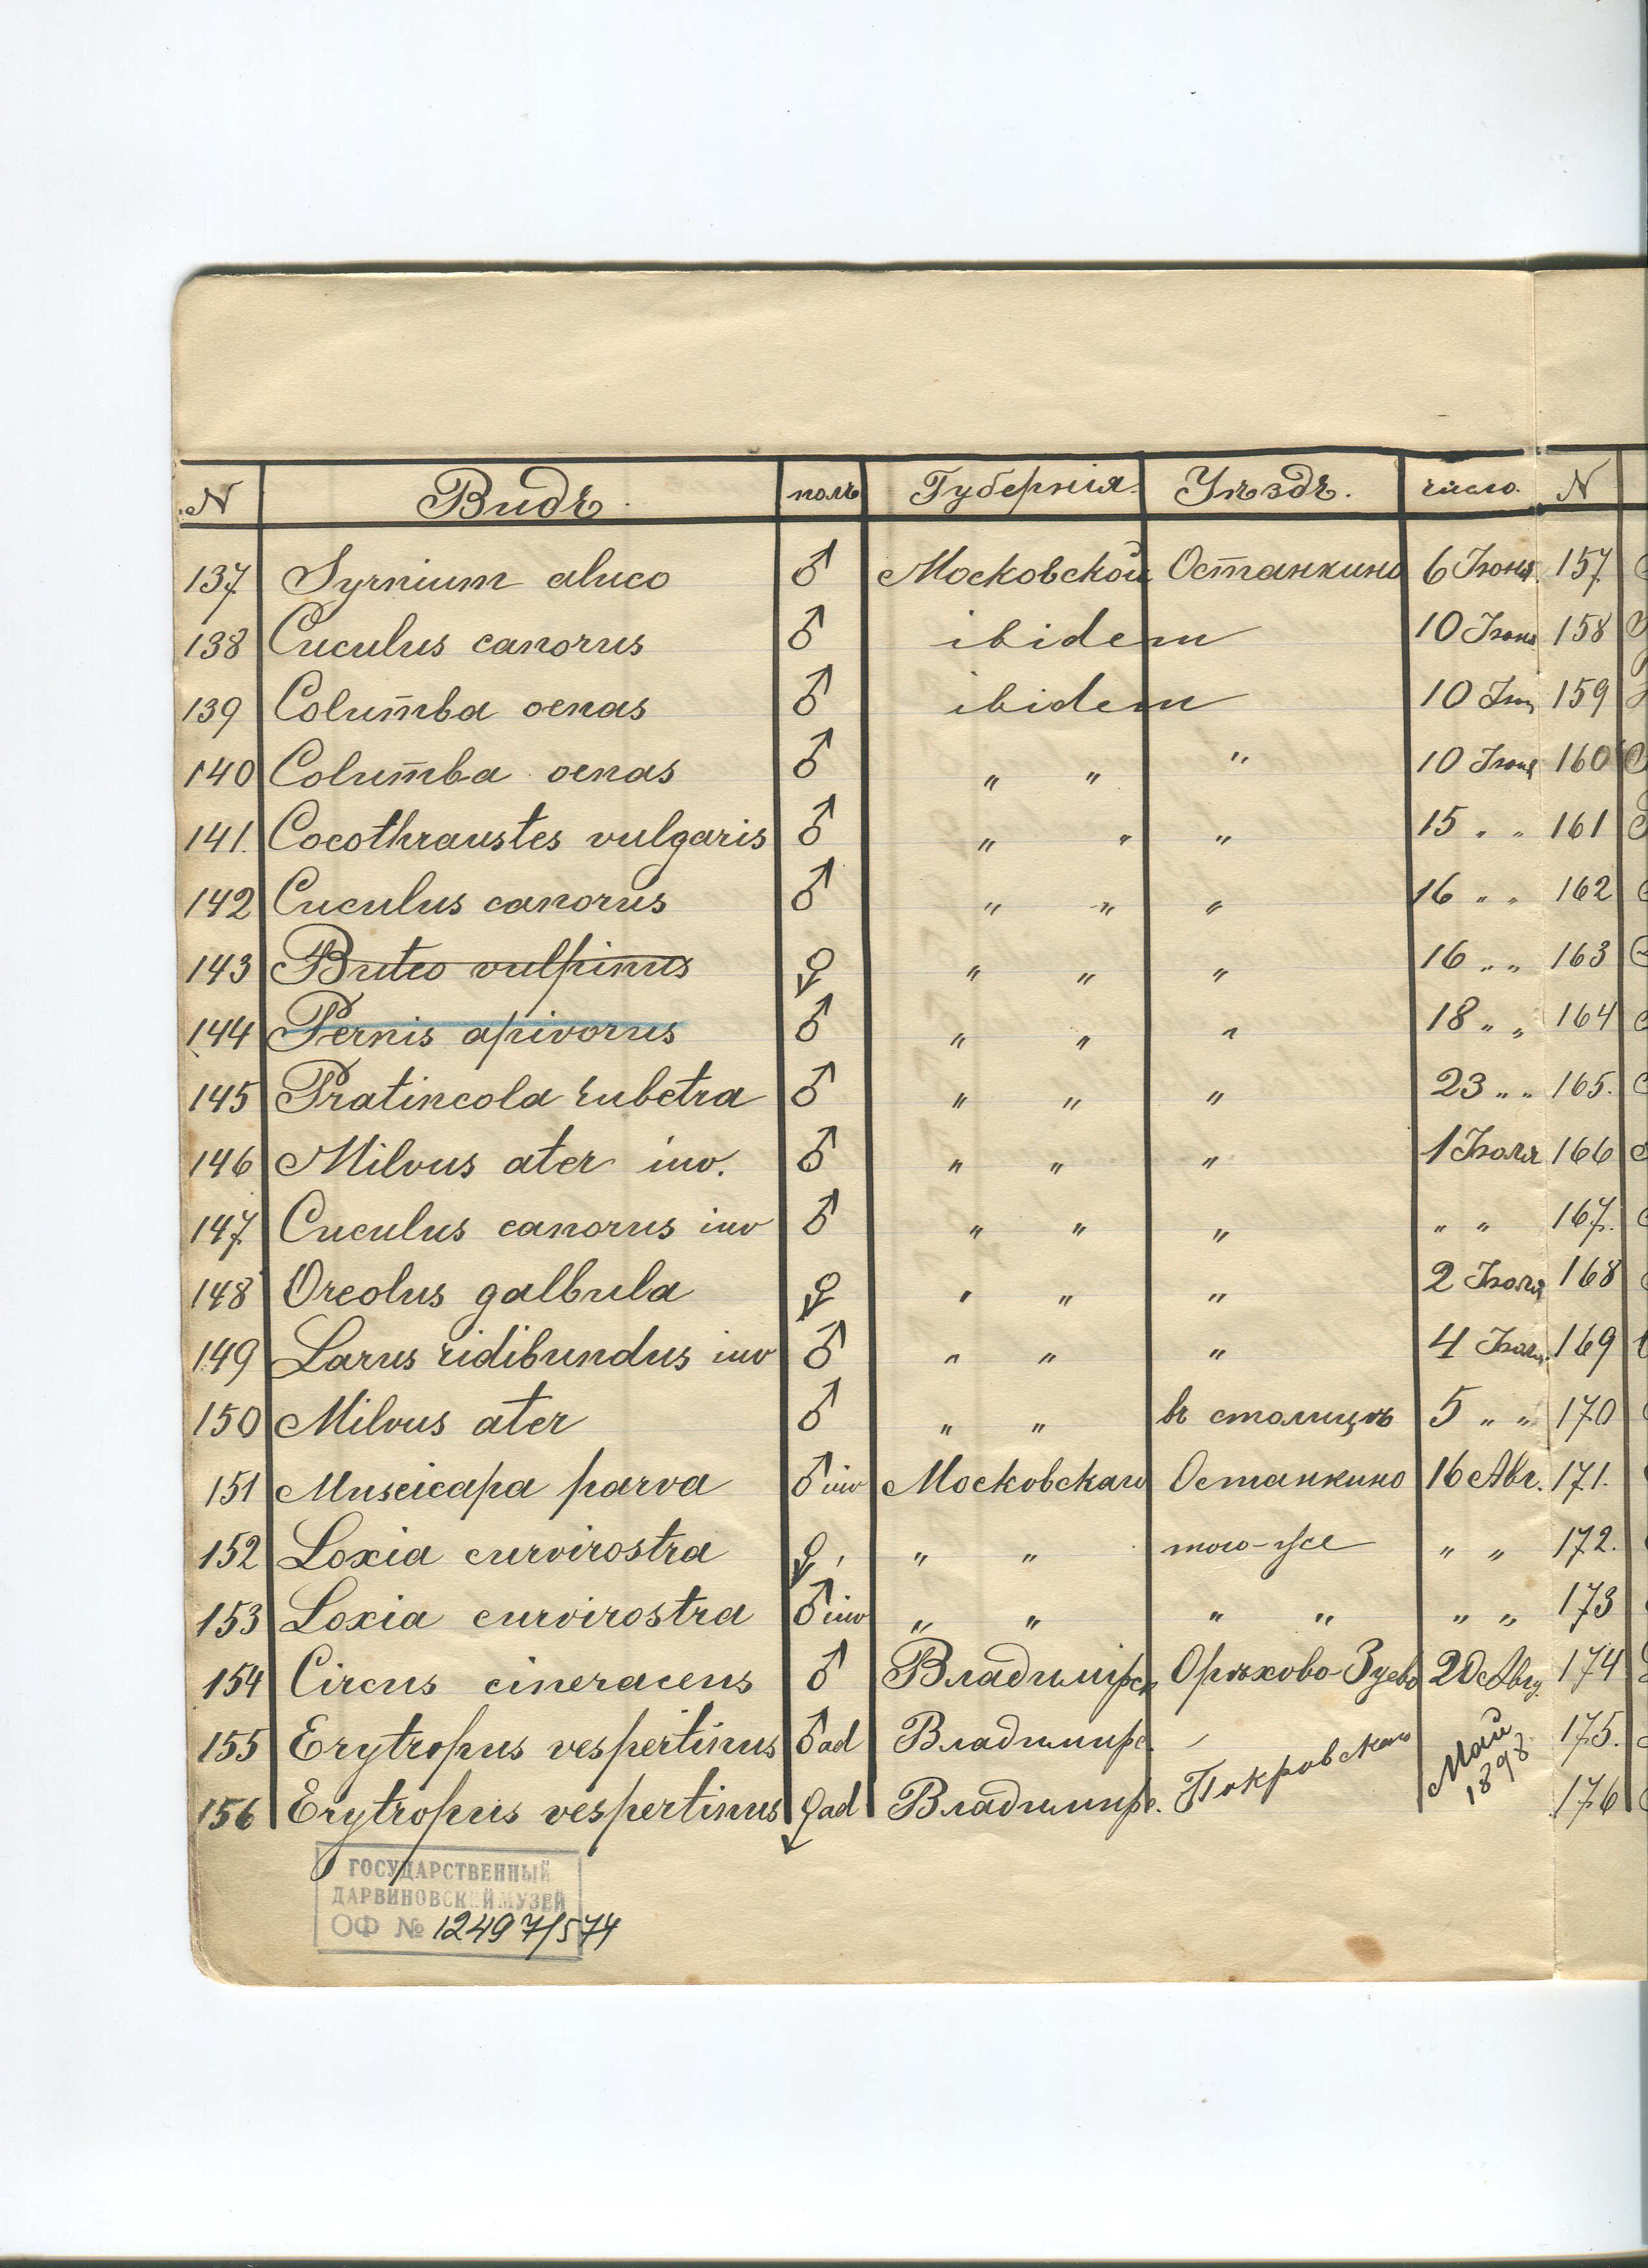 N Видъ. полъ Губернія. Уѣздъ. число. N
137 Syrnium aluco ♂ Московской Останкино 6 Іюня 157
138 Cuculus canorus ♂ ibidem 10 Іюня 158
139 Colum̄ba oenas ♂ ibidem 10 159
140 Colum̄ba oenas ♂ " " " 10 Іюня 160
141. Cocothraustes vulgaris ♂ " " " 15 " " 161
142 Cuculus canorus ♂ " " " 16 " " 162
143 Buteo vulpinus ♀ " " " 16 " " 163
144 Pernis apivorus ♂ " " " 18 " " 164
145 Pratincola rubetra ♂ " " " 23 " " 165.
146 Milvus ater iuv. ♂ " " " 1 Іюля 166
147 Cuculus canorus iuv ♂ " " " " " 167.
148 Oreolus galbula ♀ " " " 2 Іюля 168
149 Larus ridibundus iuv ♂ " " " 4 Іюля 169
150 Milvus ater ♂ " " въ столицѣ 5 " " 170
151 Muscicapa parva ♂ iuv Московскаго Останкино 16 Авг. 171.
152 Loxia curvirostra ♀ " " того-же " " 172.
153 Loxia curvirostra ♂ iuv " " " " " " 173
154 Circus cineraceus ♂ Владимірск Орѣхово-Зуево 20 Авгу. 174
155 Erytropus vespertinus ♂ ad Владимирс. Покровскаго Май 1898 175.
156 Erytropus vespertinus ♀ ad Владимирс. 176
ГОСУДАРСТВЕННЫЙ
ДАРВИНОВСКИЙ МУЗЕЙ
ОФ № 12497/574